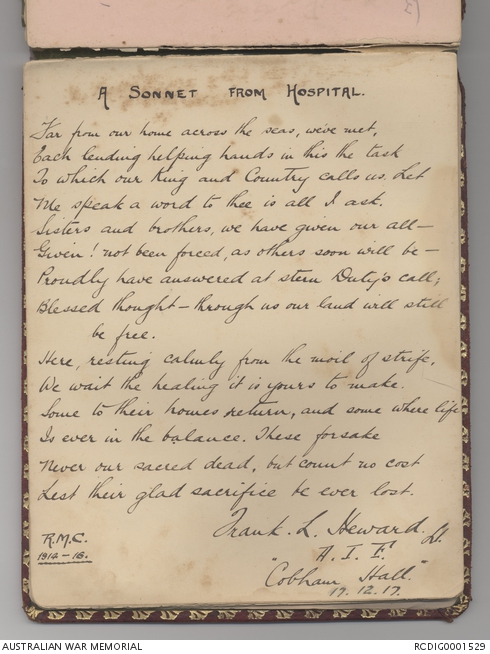 A SONNET FROM HOSPITAL.
Far from our home across the seas, we've met,
Each lending helping hands in this the task
To which our King and Country calls us. Let
Me speak a word to thee is all I ask.
Sisters and brothers, we have given our all—
Given! not been forced, as others soon will be—
Proudly have answered at stern Duty's call;
Blessed thought—through us our land will still
be free.
Here, resting calmly from the moil of strife,
We wait the healing it is yours to make.
Some to their homes return, and some where life
Is ever in the balance. These forsake
Never our sacred dead, but count no cost
Lest their glad sacrifice be ever lost.
Frank. L. Heward. Lt.
A.I.F.
"Cobham Hall."
17.12.17.
R.M.C.
1914-16.
AUSTRALIAN WAR MEMORIAL
RCDIG0001529